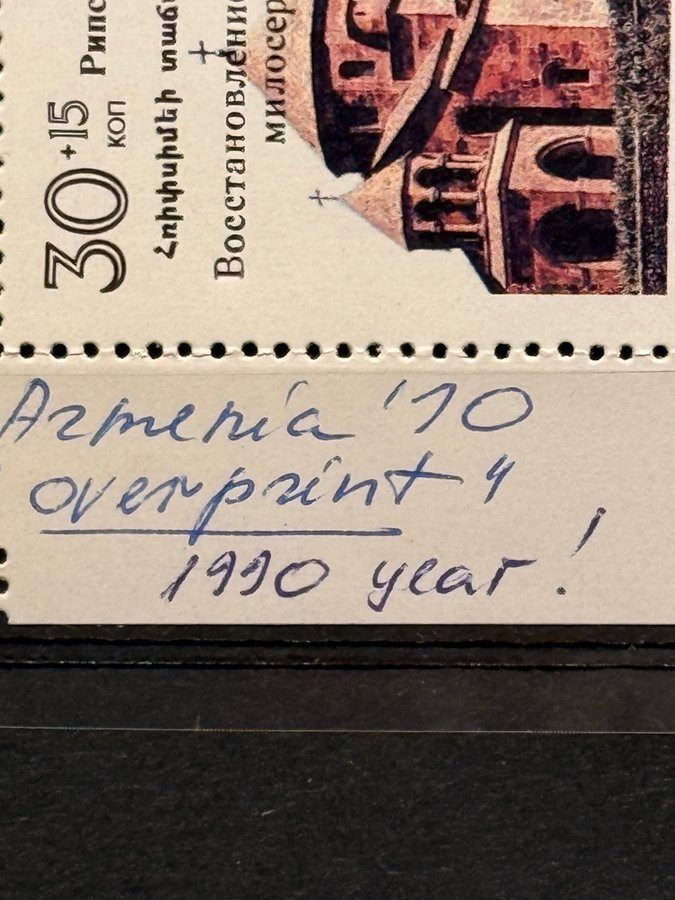 30 +15 коп
Рипс
Հռիփսիմեի տաճ
Восстановление
милосер
Armenia '10
overprint "
1990 year!